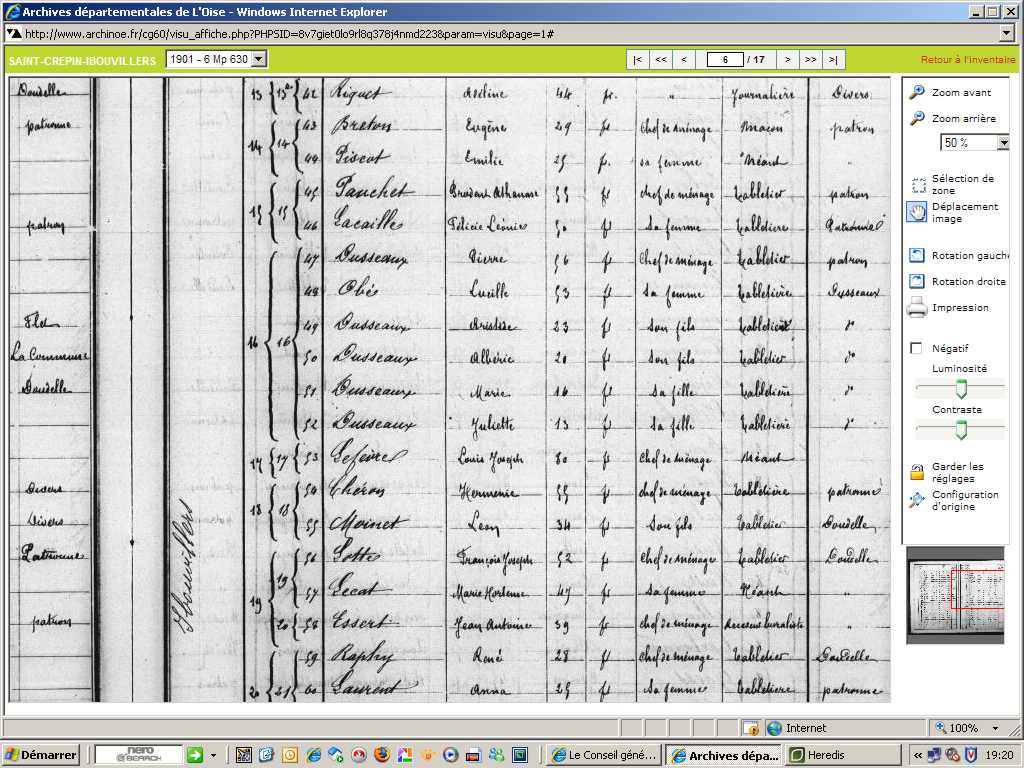 Archives départementales de L'Oise - Windows Internet Explorer
http://www.archinoe.fr/cg60/visu_affiche.php?PHPSID=8v7giet0lo9rl8q378j4nmd223&param=visu&page=1#
SAINT-CREPIN-IBOUVILLERS 1901 - 6 Mp 630 |< << < 6 / 17 > >> >| Retour à l'inventaire
Doudelle 13 13 42 Riquet Adeline 44 fr. " Journalière Divers
patronne 43 Breton Eugène 29 fr Chef de ménage Macon patron
14 14 44 Piscot Emilie 25 fr. sa femme Néant "
45 Pauchet 55 fr chef de ménage Tabletier patron
patron 15 15 46 Lacaille Félicie 50 fr Sa femme Tabletière
47 Dusseaux Pierre 56 fr Chef de ménage Tabletier patron
48 Obé Lucille 53 fr Sa femme Tabletière Dusseaux
49 Dusseaux Aristide 23 fr Son fils Tabletier d°
La Commune 16 16 50 Dusseaux Albéric 20 fr Son fils Tabletier d°
Doudelle 51 Dusseaux Marie 16 fr Sa fille Tabletière d°
52 Dusseaux Juliette 13 fr Sa fille Tabletière d°
17 17 53 Lefèvre Louis Joseph 80 fr Chef de ménage Néant
Divers 54 Chéron Hermenie 55 fr chef de ménage Tabletière patronne
Divers 18 18 55 Moinet Leon 34 fr Son fils Tabletier Doudelle
Patronne 56 Lotte François Joseph 52 fr Chef de ménage Tabletier Doudelle
19 19 57 Lecat Marie Hortense 47 fr Sa femme Néant "
patron 20 58 Essert Jean Antoine 39 fr chef de ménage Receveur buraliste "
59 Raphy René 28 fr chef de ménage Tabletier Doudelle
20 21 60 Laurent Anna 25 fr Sa femme Tabletière patronne
Ibouvillers
Zoom avant
Zoom arrière
50 %
Sélection de
zone
Déplacement
image
Rotation gauche
Rotation droite
Impression
Négatif
Luminosité
Contraste
Garder les
réglages
Configuration
d'origine
Internet 100%
Démarrer nero SEARCH Le Conseil géné... Archives dépa... Heredis « 19:20